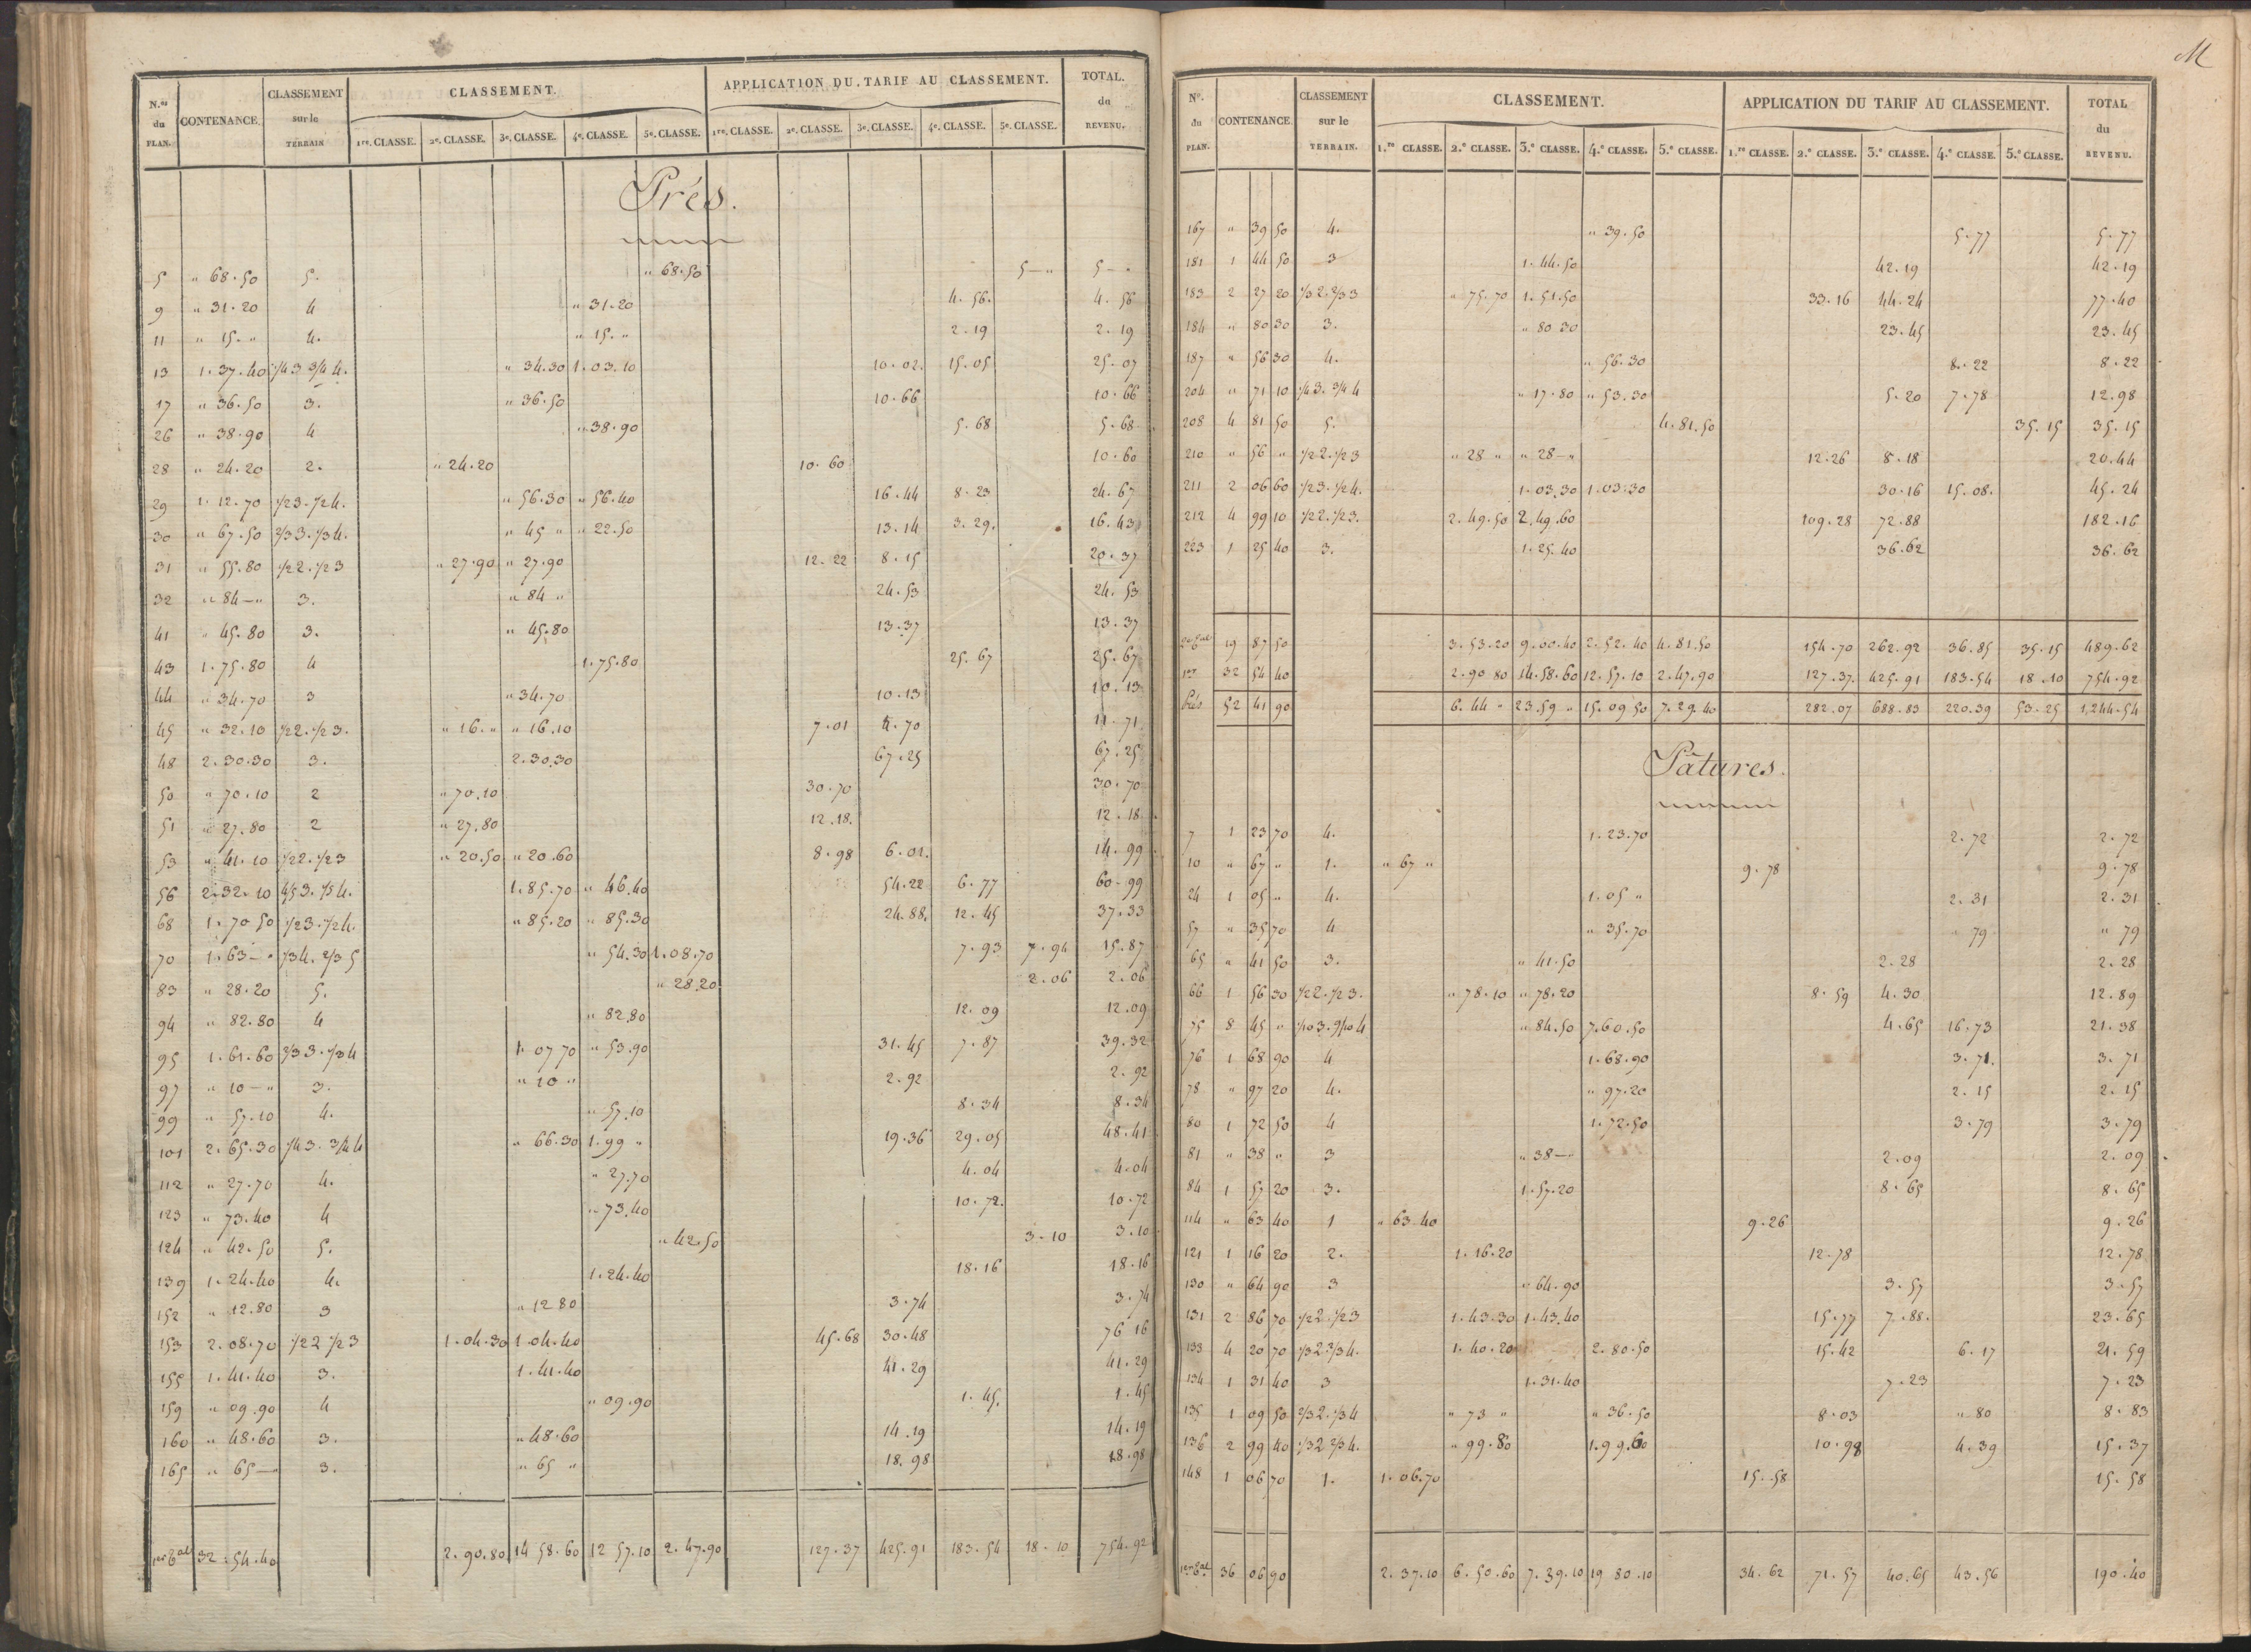 N.os du PLAN. CONTENANCE. CLASSEMENT sur le TERRAIN CLASSEMENT. APPLICATION DU TARIF AU CLASSEMENT. TOTAL. du REVENU.
1re. CLASSE. 2e. CLASSE. 3e. CLASSE. 4e. CLASSE. 5e. CLASSE. 1re. CLASSE. 2e. CLASSE. 3e. CLASSE. 4e. CLASSE. 5e. CLASSE.
Prés.
5 " 68.50 5. " 68.50 5 — " 5 — "
9 " 31.20 4 " 31.20 4.56. 4.56
11 " 15. " 4. " 15. " 2.19 2.19
13 1.37.40 1/4 3 3/4 4. " 34.30 1.03.10 10.02. 15.05 25.07
17 " 36.50 3. " 36.50 10.66 10.66
26 " 38.90 4 " 38.90 5.68 5.68
28 " 24.20 2. " 24.20 10.60 10.60
29 1.12.70 1/2 3. 1/2 4. " 56.30 " 56.40 16.44 8.23 24.67
30 " 67.50 2/3 3. 1/3 4. " 45 " " 22.50 13.14 3.29. 16.43
31 " 55.80 1/2 2. 1/2 3 " 27.90 " 27.90 12.22 8.15 20.37
32 " 84 — " 3. " 84 " 24.53 24.53
41 " 45.80 3. " 45.80 13.37 13.37
43 1.75.80 4 1.75.80 25.67 25.67
44 " 34.70 3 " 34.70 10.13 10.13
45 " 32.10 1/2 2. 1/2 3. " 16. " " 16.10 7.01 4.70 11.71
48 2.30.30 3. 2.30.30 67.25 67.25
50 " 70.10 2 " 70.10 30.70 30.70
51 " 27.80 2 " 27.80 12.18. 12.18
53 " 41.10 1/2 2. 1/2 3 " 20.50 " 20.60 8.98 6.01. 14.99
56 2.32.10 4/5 3. 1/5 4. 1.85.70 " 46.40 54.22 6.77 60.99
68 1.70.50 1/2 3. 1/2 4. " 85.20 " 85.30 24.88. 12.45 37.33
70 1.63 — " 1/3 4. 2/3 5 " 54.30 1.08.70 7.93 7.94 15.87
83 " 28.20 5. " 28.20 2.06 2.06
94 " 82.80 4 " 82.80 12.09 12.09
95 1.61.60 2/3 3. 1/3 4 1.07 70 " 53.90 31.45 7.87 39.32
97 " 10 — " 3. " 10 " 2.92 2.92
99 " 57.10 4. " 57.10 8.34 8.34
101 2.65.30 1/4 3. 3/4 4 " 66.30 1.99 " 19.36 29.05 48.41
112 " 27.70 4. " 27.70 4.04 4.04
123 " 73.40 4 " 73.40 10.72. 10.72
124 " 42.50 5. " 42.50 3.10 3.10
139 1.24.40 4. 1.24.40 18.16 18.16
152 " 12.80 3 " 12 80 3.74 3.74
153 2.08.70 1/2 2 1/2 3 1.04.30 1.04.40 45.68 30.48 76 16
155 1.41.40 3. 1.41.40 41.29 41.29
159 " 09.90 4 " 09.90 1.45. 1.45
160 " 48.60 3. " 48.60 14.19 14.19
165 " 65 — " 3. " 65 " 18.98 18.98
1er Tal 32.54.40 2.90.80 14 58.60 12 57.10 2.47.90 127.37 425.91 183.54 18.10 754.92
M
N.o du PLAN. CONTENANCE. CLASSEMENT sur le TERRAIN. CLASSEMENT. APPLICATION DU TARIF AU CLASSEMENT. TOTAL du REVENU.
1.re CLASSE. 2.e CLASSE. 3.e CLASSE. 4.e CLASSE. 5.e CLASSE. 1.re CLASSE. 2.e CLASSE. 3.e CLASSE. 4.e CLASSE. 5.e CLASSE.
167 " 39 50 4. " 39.50 5.77 5.77
181 1 44 50 3 1.44.50 42.19 42.19
183 2 27 20 1/3 2. 2/3 3 " 75.70 1.51.50 33.16 44.24 77.40
184 " 80 30 3. " 80 30 23.45 23.45
187 " 56 30 4. " 56.30 8.22 8.22
204 " 71 10 1/4 3. 3/4 4 " 17.80 " 53.30 5.20 7.78 12.98
208 4 81 50 5. 4.81.50 35.15 35.15
210 " 56 " 1/2 2. 1/2 3 " 28 " " 28 — " 12.26 8.18 20.44
211 2 06 60 1/2 3. 1/2 4. 1.03.30 1.03.30 30.16 15.08. 45.24
212 4 99 10 1/2 2. 1/2 3. 2.49.50 2.49.60 109.28 72.88 182.16
223 1 25 40 3. 1.25.40 36.62 36.62
2e Tal 19 87 50 3.53.20 9.00.40 2.52.40 4.81.50 154.70 262.92 36.85 35.15 489.62
1er 32 54 40 2.90 80 14.58.60 12.57.10 2.47.90 127.37. 425.91 183.54 18.10 754.92
Prés 52 41 90 6.44 " 23.59 " 15.09 50 7.29.40 282.07 688.83 220.39 53.25 1,244.54
Pâtures.
7 1 23 70 4. 1.23.70 2.72 2.72
10 " 67 " 1. " 67 " 9.78 9.78
24 1 05 " 4. 1.05 " 2.31 2.31
57 " 35 70 4 " 35.70 " 79 " 79
65 " 41 50 3. " 41.50 2.28 2.28
66 1 56 30 1/2 2. 1/2 3. " 78.10 " 78.20 8.59 4.30 12.89
75 8 45 " 1/10 3. 9/10 4 " 84.50 7.60.50 4.65 16.73 21.38
76 1 68 90 4 1.68.90 3.71. 3.71
78 " 97 20 4. " 97.20 2.15 2.15
80 1 72 50 4 1.72.50 3.79 3.79
81 " 38 " 3 " 38 — " 2.09 2.09
84 1 57 20 3. 1.57.20 8.65 8.65
114 " 63 40 1 " 63.40 9.26 9.26
121 1 16 20 2. 1.16.20 12.78 12.78
130 " 64 90 3 " 64.90 3.57 3.57
131 2 86 70 1/2 2. 1/2 3 1.43.30 1.43.40 15.77 7.88. 23.65
133 4 20 70 1/3 2. 2/3 4. 1.40.20 2.80.50 15.42 6.17 21.59
134 1 31 40 3 1.31.40 7.23 7.23
135 1 09 50 2/3 2. 1/3 4 " 73 " " 36.50 8.03 " 80 8.83
136 2 99 40 1/3 2 2/3 4. " 99.80 1.99.60 10.98 4.39 15.37
148 1 06 70 1. 1.06.70 15.58 15.58
1er Tal 36 06 90 2.37.10 6.50.60 7.39.10 19 80.10 34.62 71.57 40.65 43.56 190.40